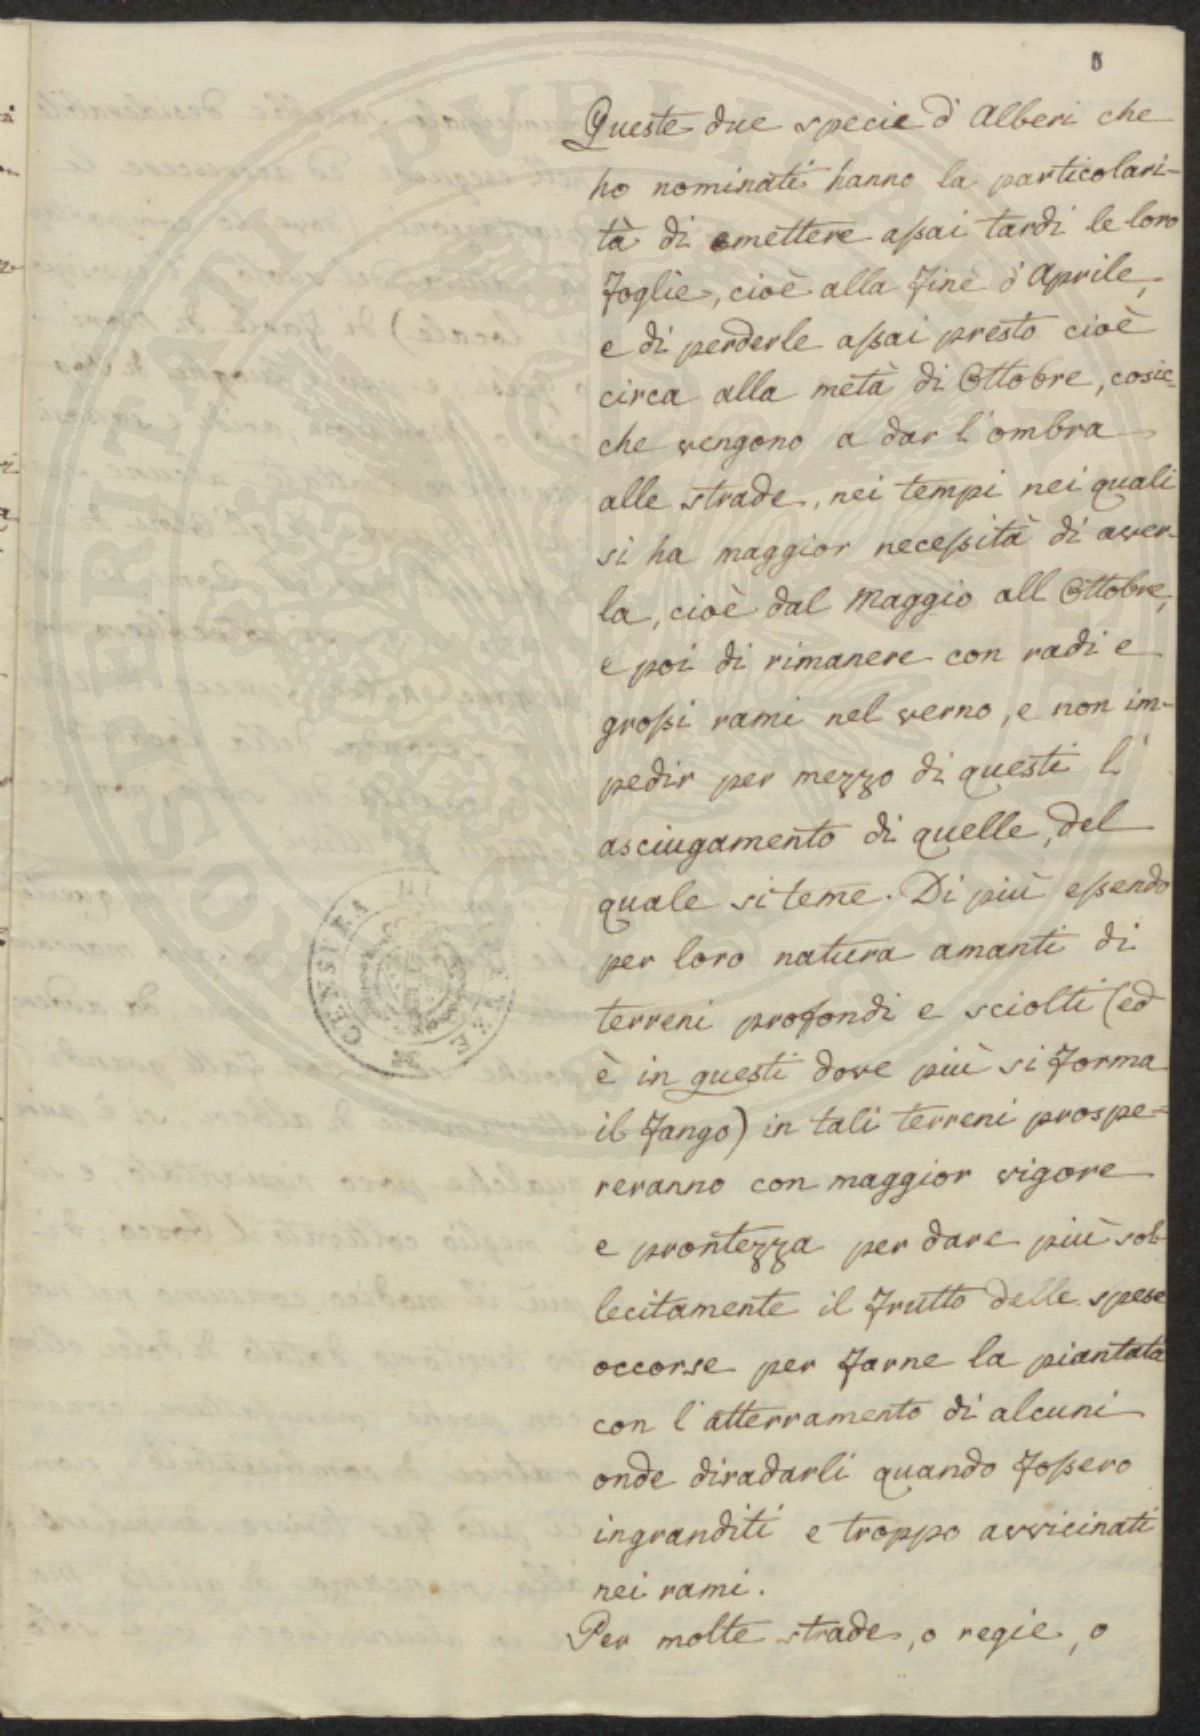 5
Queste due specie d'Alberi che
ho nominati hanno la particolari-
tà di emettere assai tardi le loro
foglie, cioè alla fine d'Aprile,
e di perderle assai presto cioè
circa alla metà di Ottobre, cosic=
che vengono a dar l'ombra
alle strade, nei tempi nei quali
si ha maggior necessità di aver-
la, cioè dal Maggio all Ottobre,
e poi di rimanere con radi e
grossi rami nel verno, e non im-
pedir per mezzo di questi l'
asciugamento di quelle, del
quale si teme. Di più essendo
per loro natura amanti di
terreni profondi e sciolti (ed
è in questi dove più si forma
il fango) in tali terreni prospe=
reranno con maggior vigore
e prontezza per dare più sol-
lecitamente il frutto delle spese
occorse per farne la piantata
con l'atterramento di alcuni
onde diradarli quando fossero
ingranditi e troppo avvicinati
nei rami.
Per molte strade, o regie, o
PVBLICAE
PROSPERITATI
CENSURA